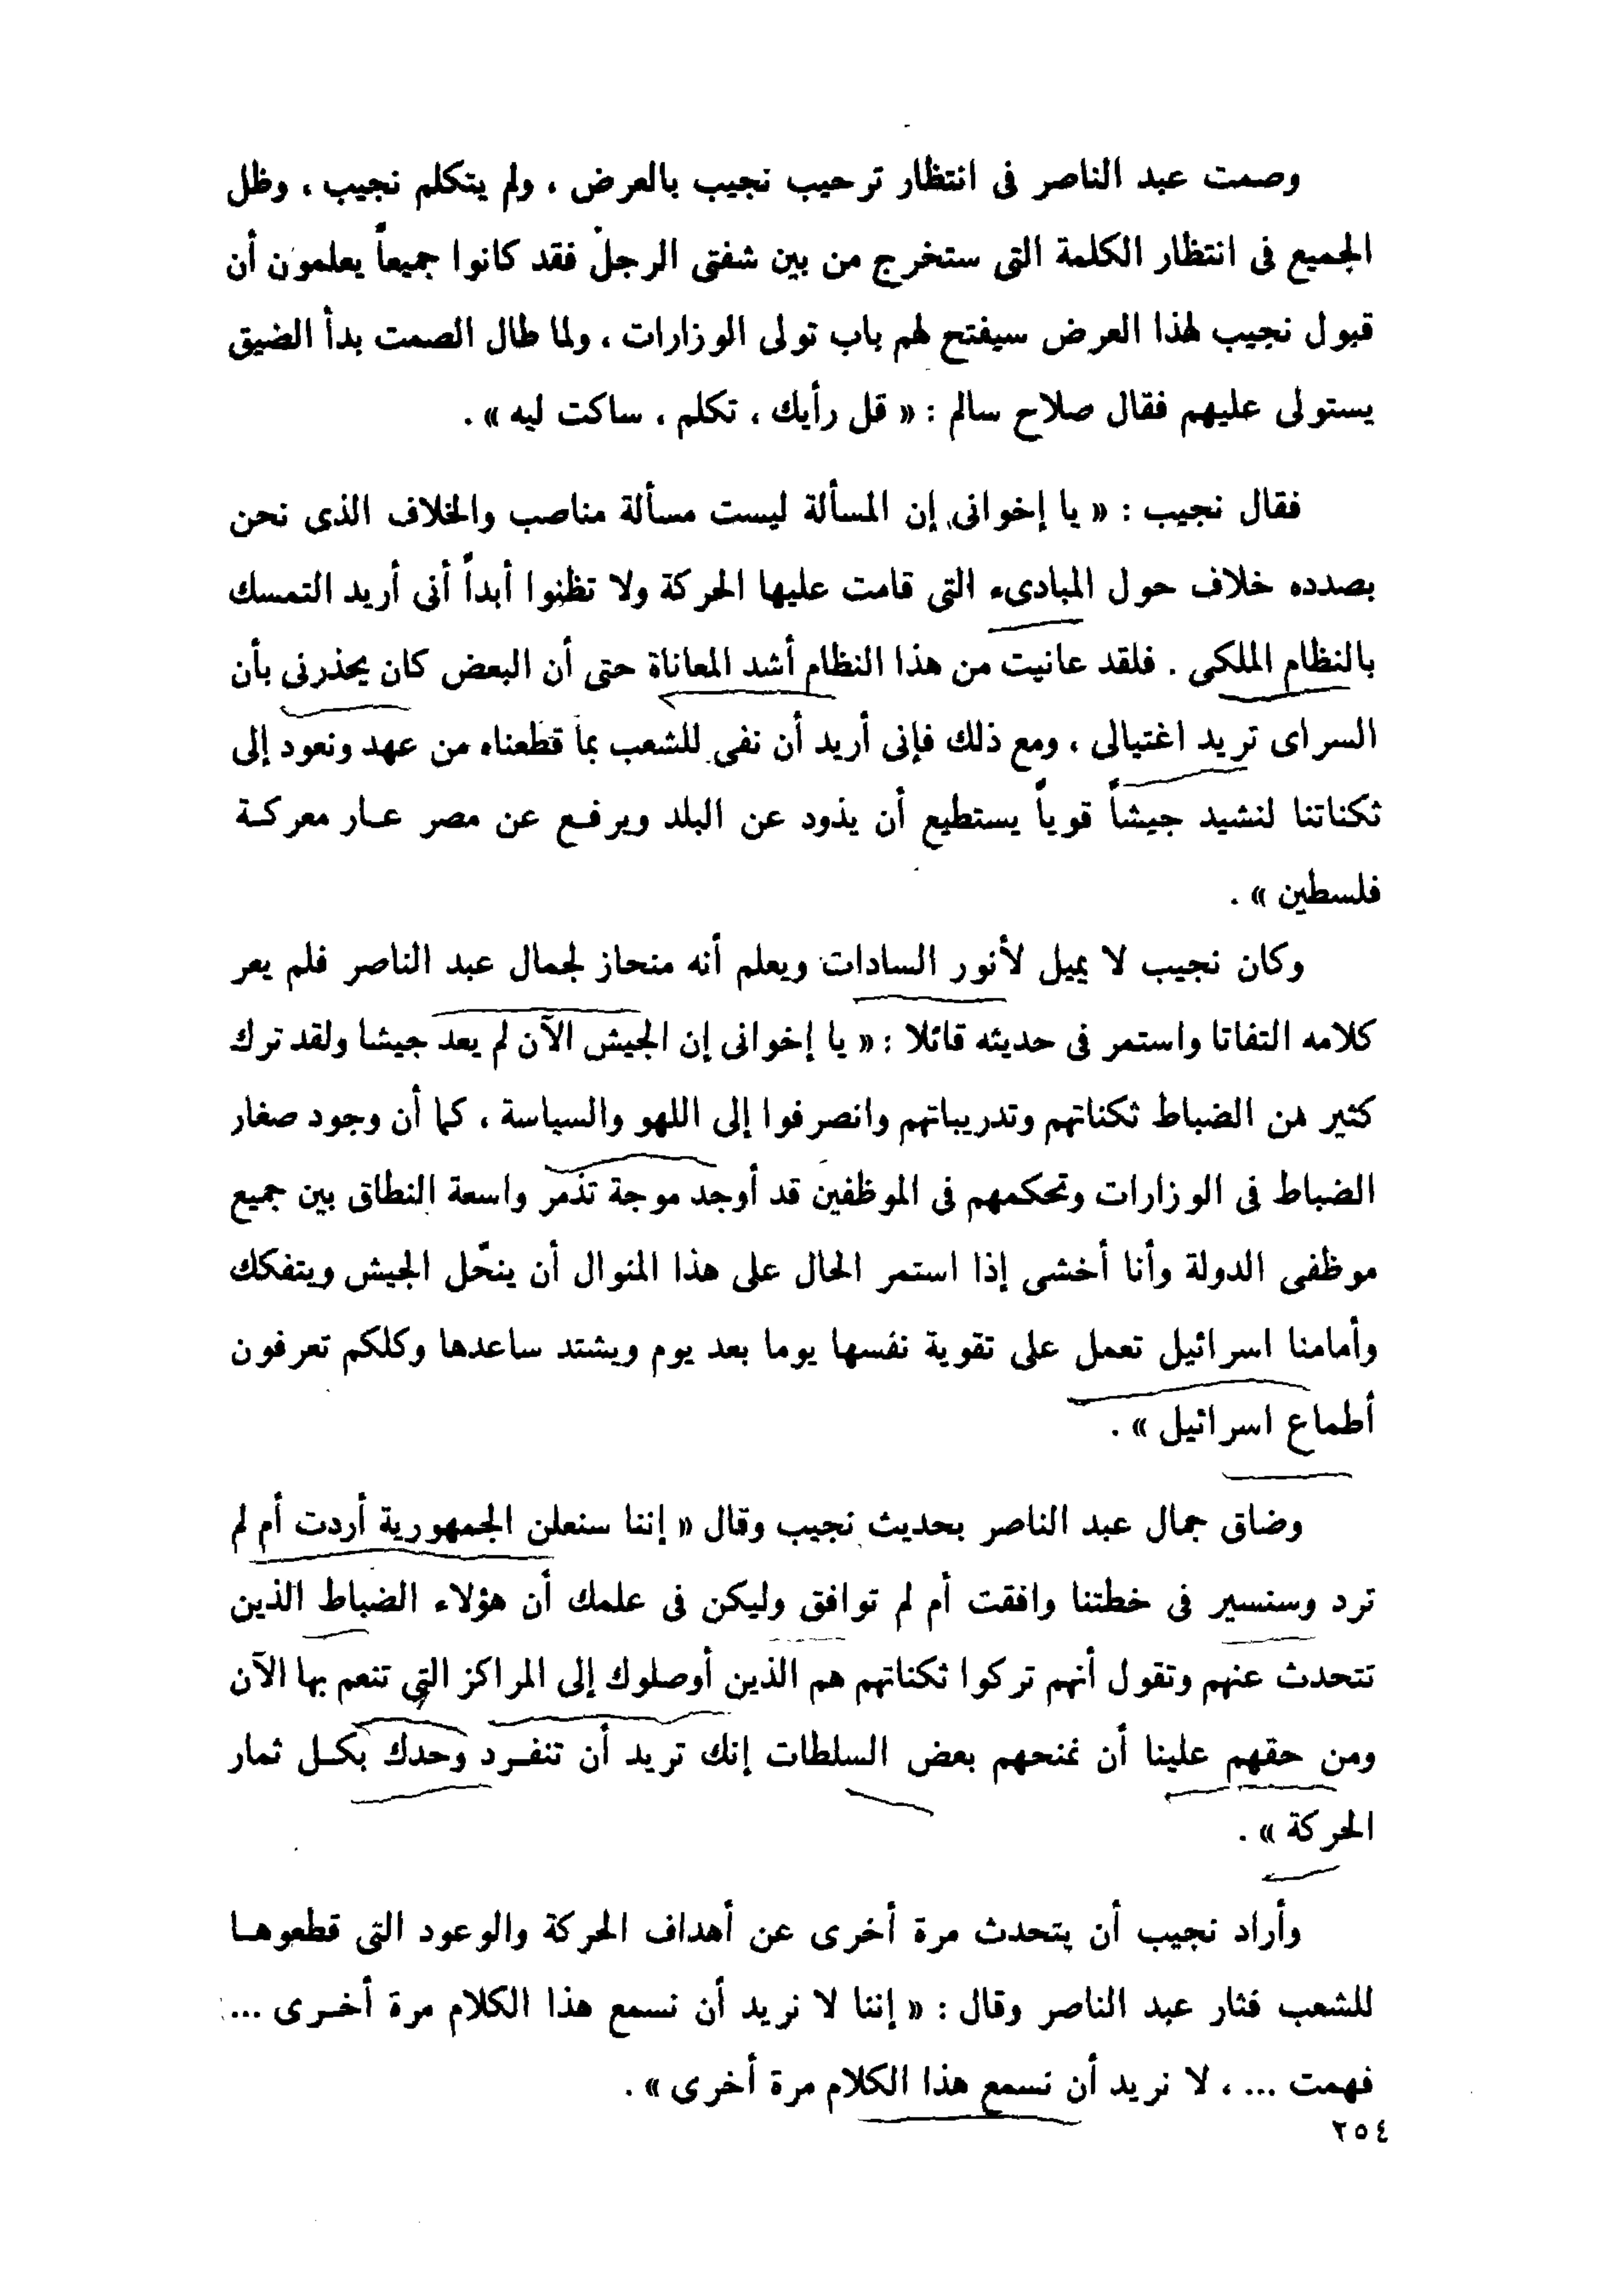 وصمت عبد الناصر فى انتظار ترحيب نجيب بالعرض ، ولم يتكلم نجيب ، وظل
الجميع فى انتظار الكلمة التى ستخرج من بين شفتى الرجل فقد كانوا جميعاً يعلمون أن
قبول نجيب لهذا العرض سيفتح لهم باب تولى الوزارات ، ولما طال الصمت بدأ الضيق
يستولى عليهم فقال صلاح سالم : « قل رأيك ، تكلم ، ساكت ليه » .
فقال نجيب : « يا إخوانى إن المسألة ليست مسألة مناصب والخلاف الذى نحن
بصدده خلاف حول المبادىء التى قامت عليها الحركة ولا تظنوا أبداً أنى أريد التمسك
بالنظام الملكى . فلقد عانيت من هذا النظام أشد المعاناة حتى أن البعض كان يحذرنى بأن
السراى تريد اغتيالى ، ومع ذلك فإنى أريد أن نفى للشعب بما قطعناه من عهد ونعود إلى
ثكناتنا لنشيد جيشاً قوياً يستطيع أن يذود عن البلد ويرفع عن مصر عار معركة
فلسطين » .
وكان نجيب لا يميل لأنور السادات ويعلم أنه منحاز لجمال عبد الناصر فلم يعر
كلامه التفاتا واستمر فى حديثه قائلا : « يا إخوانى إن الجيش الآن لم يعد جيشا ولقد ترك
كثير من الضباط ثكناتهم وتدريباتهم وانصرفوا إلى اللهو والسياسة ، كما أن وجود صغار
الضباط فى الوزارات وتحكمهم فى الموظفين قد أوجد موجة تذمر واسعة النطاق بين جميع
موظفى الدولة وأنا أخشى إذا استمر الحال على هذا المنوال أن ينحّل الجيش ويتفكك
وأمامنا اسرائيل تعمل على تقوية نفسها يوما بعد يوم ويشتد ساعدها وكلكم تعرفون
أطماع اسرائيل » .
وضاق جمال عبد الناصر بحديث نجيب وقال « إننا سنعلن الجمهورية أردت أم لم
ترد وسنسير فى خطتنا وافقت أم لم توافق وليكن فى علمك أن هؤلاء الضباط الذين
تتحدث عنهم وتقول أنهم تركوا ثكناتهم هم الذين أوصلوك إلى المراكز التى تنعم بها الآن
ومن حقهم علينا أن نمنحهم بعض السلطات إنك تريد أن تنفرد وحدك بكل ثمار
الحركة » .
وأراد نجيب أن يتحدث مرة أخرى عن أهداف الحركة والوعود التى قطعوها
للشعب فثار عبد الناصر وقال : « إننا لا نريد أن نسمع هذا الكلام مرة أخرى ...
فهمت ... ، لا نريد أن نسمع هذا الكلام مرة أخرى » .
٢٥٤